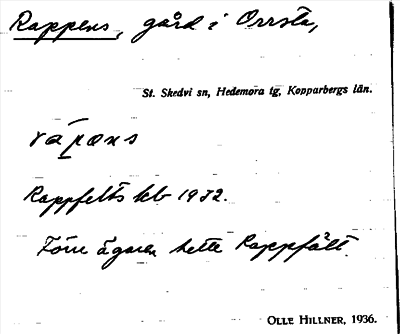 Rappens, gård i Orrsta,
St. Skedvi sn, Hedemora tg, Kopparbergs län.
rapəns
Rappfelts kb 1932.
Förre ägaren hette Rappfält.
OLLE HILLNER, 1936.